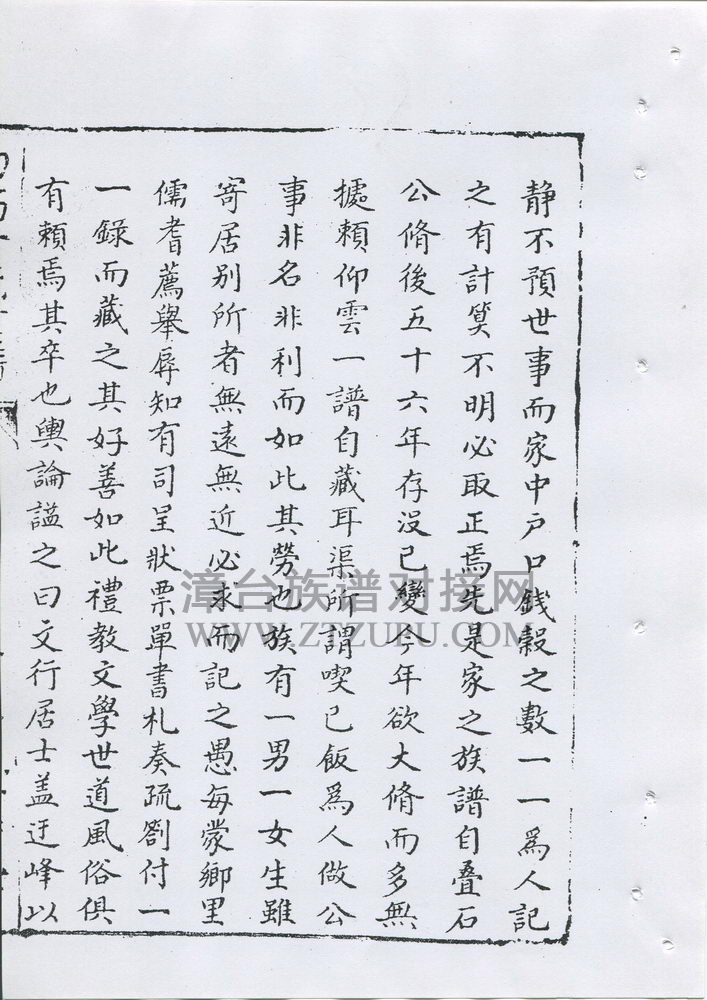 静不預世事而家中戶口錢穀之數一一爲人記
之有計筭不明必取正焉先是家之族譜自叠石
公脩後五十六年存没已變今年欲大脩而多無
據頼仰雲一譜自藏耳渠所謂喫已飯爲人做公
事非名非利而如此其勞也族有一男一女生雖
寄居別所者無遠無近必求而記之愚每蒙鄉里
儒耆薦舉辱知有司呈狀票單書札奏疏劄付一
一錄而藏之其好善如此禮教文學世道風俗俱
有頼焉其卒也輿論謚之曰文行居士盖迂峰以
漳台族谱对接网
WWW.ZTZUPU.COM